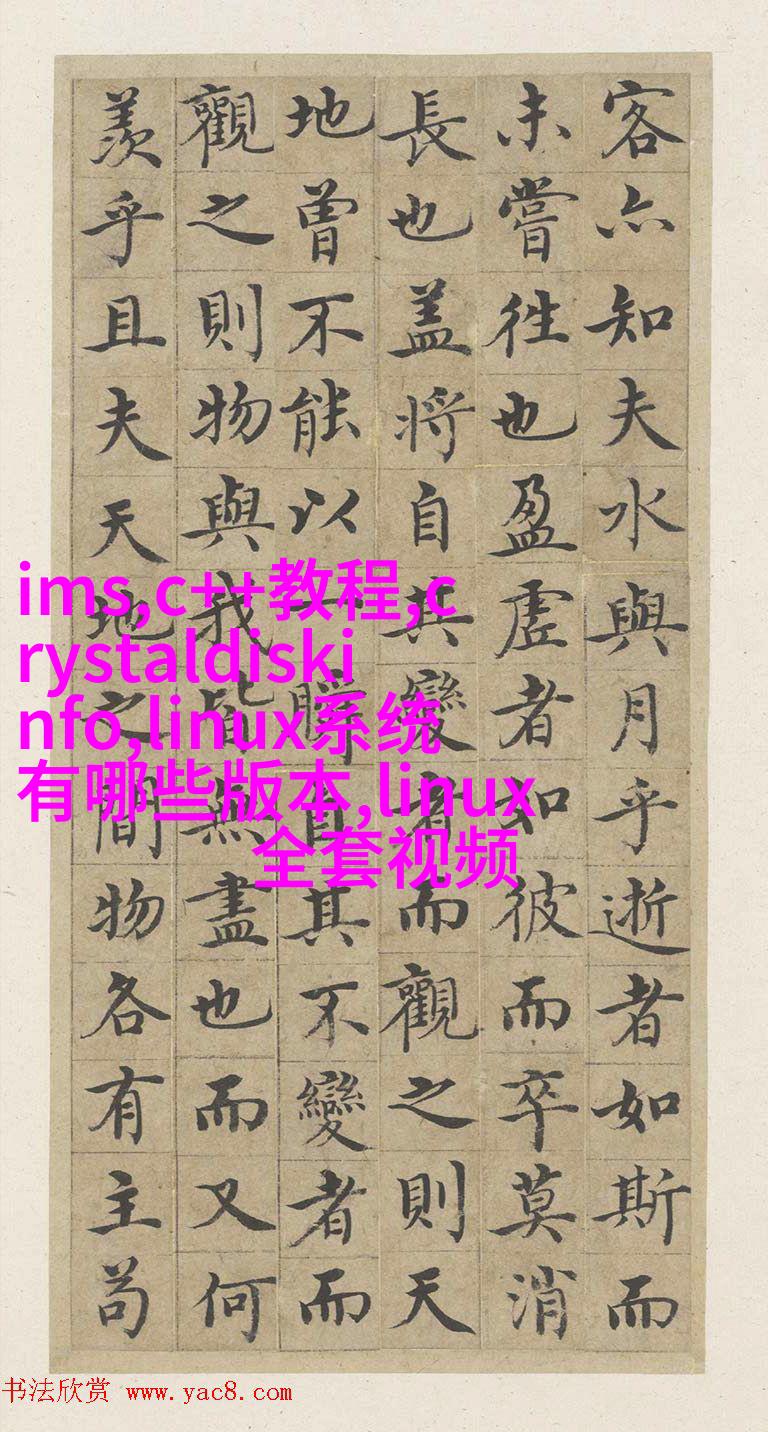 客亦知夫水與月乎逝者如斯而
未嘗徃也盈虛者如彼而卒莫消
長也盖將自其變者而觀之則天
地曾不能以一瞬自其不變者而
觀之則物與我皆無盡也而又何
羨乎且夫天地之間物各有主苟
ims,c++教程,c
rystaldiski
nfo,linux系统
有哪些版本,linux
全套视频
书法欣赏 www.yac8.com